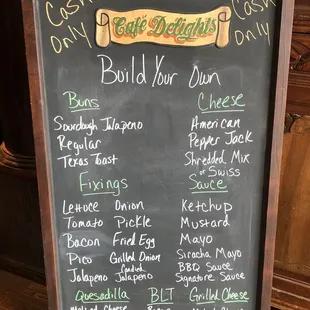 Cash Only
Café Delights
Cash Only
Build Your Own
Buns
Sourdough Jalapeno
Regular
Texas Toast
Cheese
American
Pepper Jack
Shredded Mix
of Swiss
Fixings
Lettuce Onion
Tomato Pickle
Bacon Fried Egg
Pico Grilled Onion
Jalapeno Jalapeno
Sauce
Ketchup
Mustard
Mayo
Siracha Mayo
BBQ Sauce
Signature Sauce
Quesadilla
BLT
Grilled Cheese